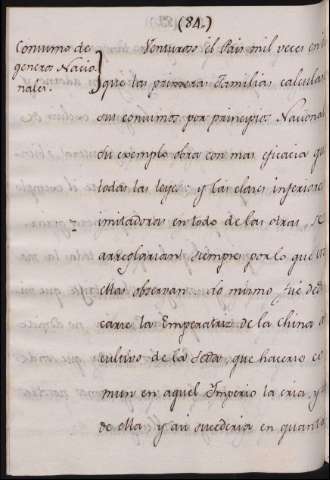 (84.)
Consumo de
generos Nacio-
nales.
Venturoso el Pais mil veces en
que las primeras Familias calculas
su consumos por principios Nacional
Su exemplo obra con mas eficacia que
todas las leyes, y las clases inferiore
imitadoras en todo de las otras, se
arreglarian siempre por lo que en
ellas observan. Lo mismo fué ded
carse la Emperatriz de la China a
cultivo de la Seda, que hacerse co
mun en aquel Imperio la cria, y
de ella y asi sucederia en quanto